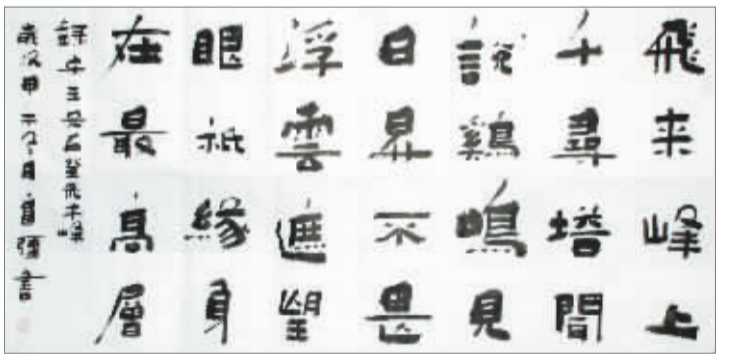 飛来峰上
千尋塔聞
說鷄鳴見
日昇不畏
浮雲遮望
眼祇緣身
在最高層
宋王安石登飛来峰
歲次甲午冬月書